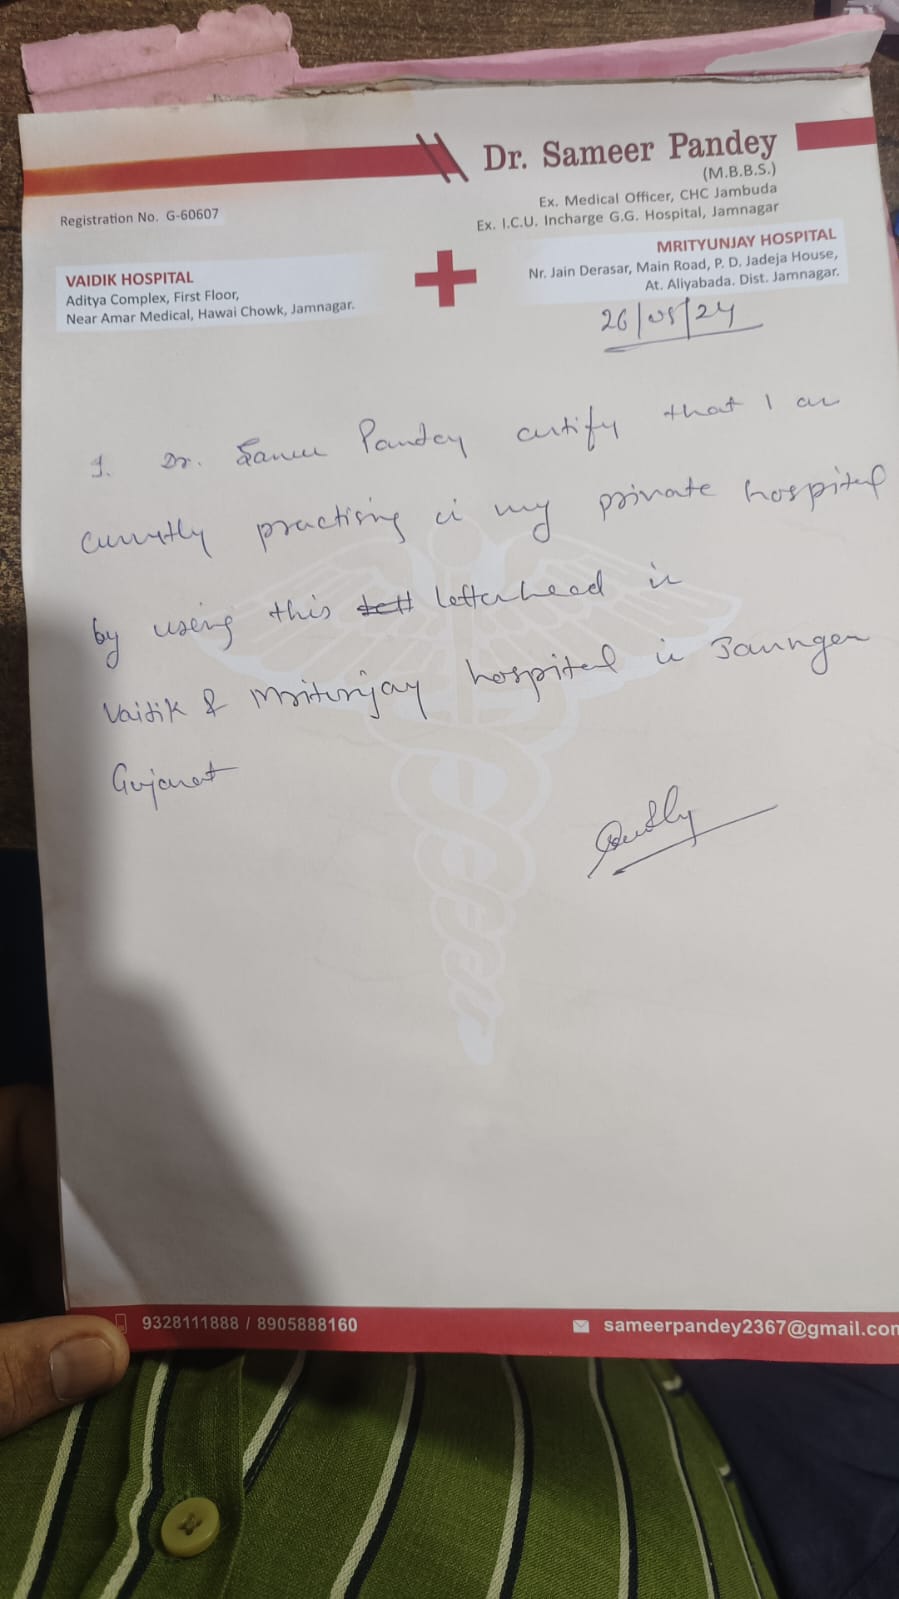 Dr. Sameer Pandey
(M.B.B.S.)
Ex. Medical Officer, CHC Jambuda
Ex. I.C.U. Incharge G.G. Hospital, Jamnagar
Registration No. G-60607
VAIDIK HOSPITAL
Aditya Complex, First Floor,
Near Amar Medical, Hawai Chowk, Jamnagar.
MRITYUNJAY HOSPITAL
Nr. Jain Derasar, Main Road, P. D. Jadeja House,
At. Aliyabada. Dist. Jamnagar.
26/05/24
I. Dr. Sameer Pandey certify that I am
currently practising in my private hospital
by using this letterhead in
Vaidik & Mritunjay hospital in Jamnagar
Gujarat
9328111888 / 8905888160
sameerpandey2367@gmail.com